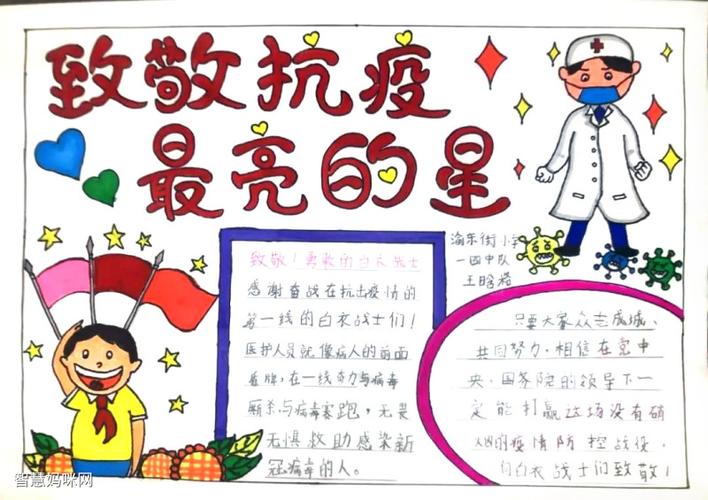 致敬抗疫
最亮的星
渝东街小学
一四中队
致敬！勇敢的白衣战士
感谢奋战在抗击疫情的
第一线的白衣战士们！
医护人员就像病人的前面
盾牌，在一线奋力与病毒
厮杀与病毒赛跑，无畏
无惧救助感染新
冠病毒的人。
只要大家众志成城、
共同努力，相信在党中
央、国务院的领导下一
定能打赢这场没有硝
烟的疫情防控战役，
向白衣战士们致敬！
智慧妈咪网